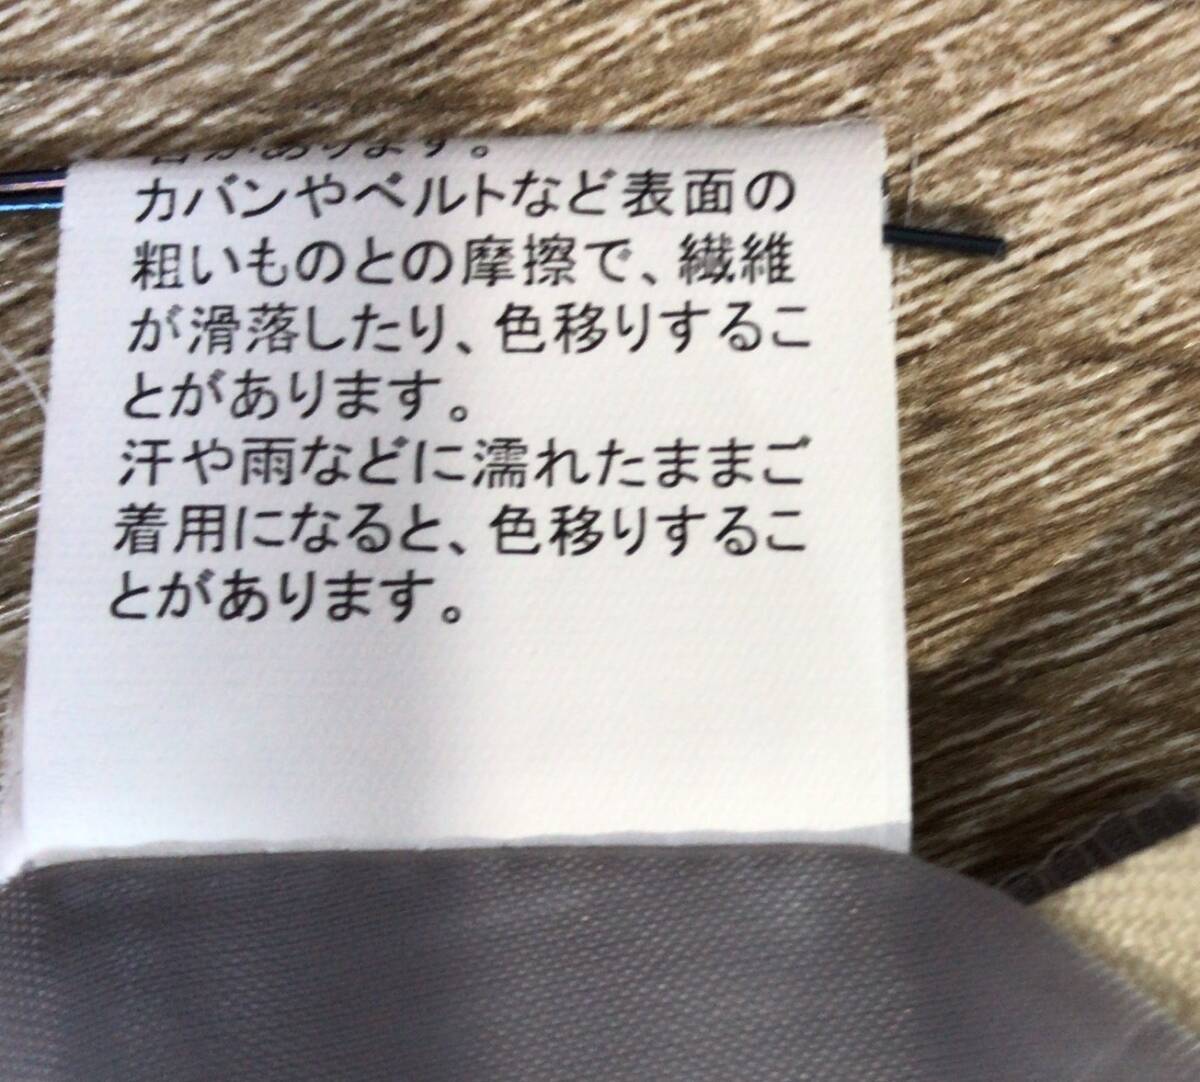 があります。
カバンやベルトなど表面の
粗いものとの摩擦で、繊維
が滑落したり、色移りするこ
とがあります。
汗や雨などに濡れたままご
着用になると、色移りするこ
とがあります。